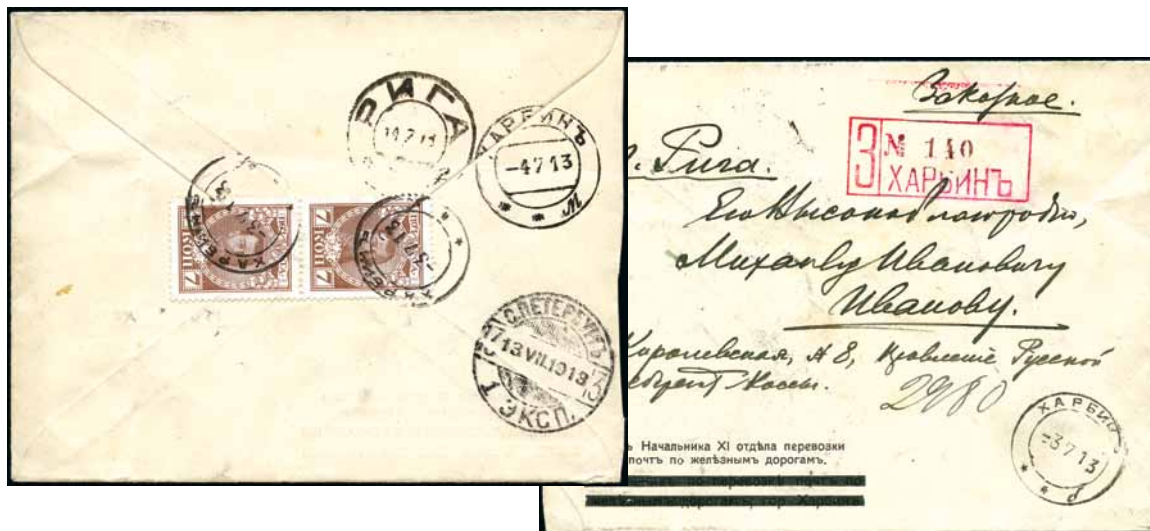 РИГА
14.7.13
ХАРБИНЪ
-4.7.13
ХАРБИНЪ
-3.7.13
7 КОП 7
ХАРБИНЪ
-3.7.13
7 КОП 7
С.ПЕТЕРБУРГЪ
13 VII 1913
1 ЭКСП.
Заказное.
З № 140
ХАРБИНЪ
г. Рига.
Его Высокоблагородію,
Михаилу Ивановичу
Иванову.
Королевская, № 8, Правленіе Русской
Кассы.
2980
ХАРБИНЪ
-3.7.13
Начальника XI отдѣла перевозки
почтъ по желѣзнымъ дорогамъ.